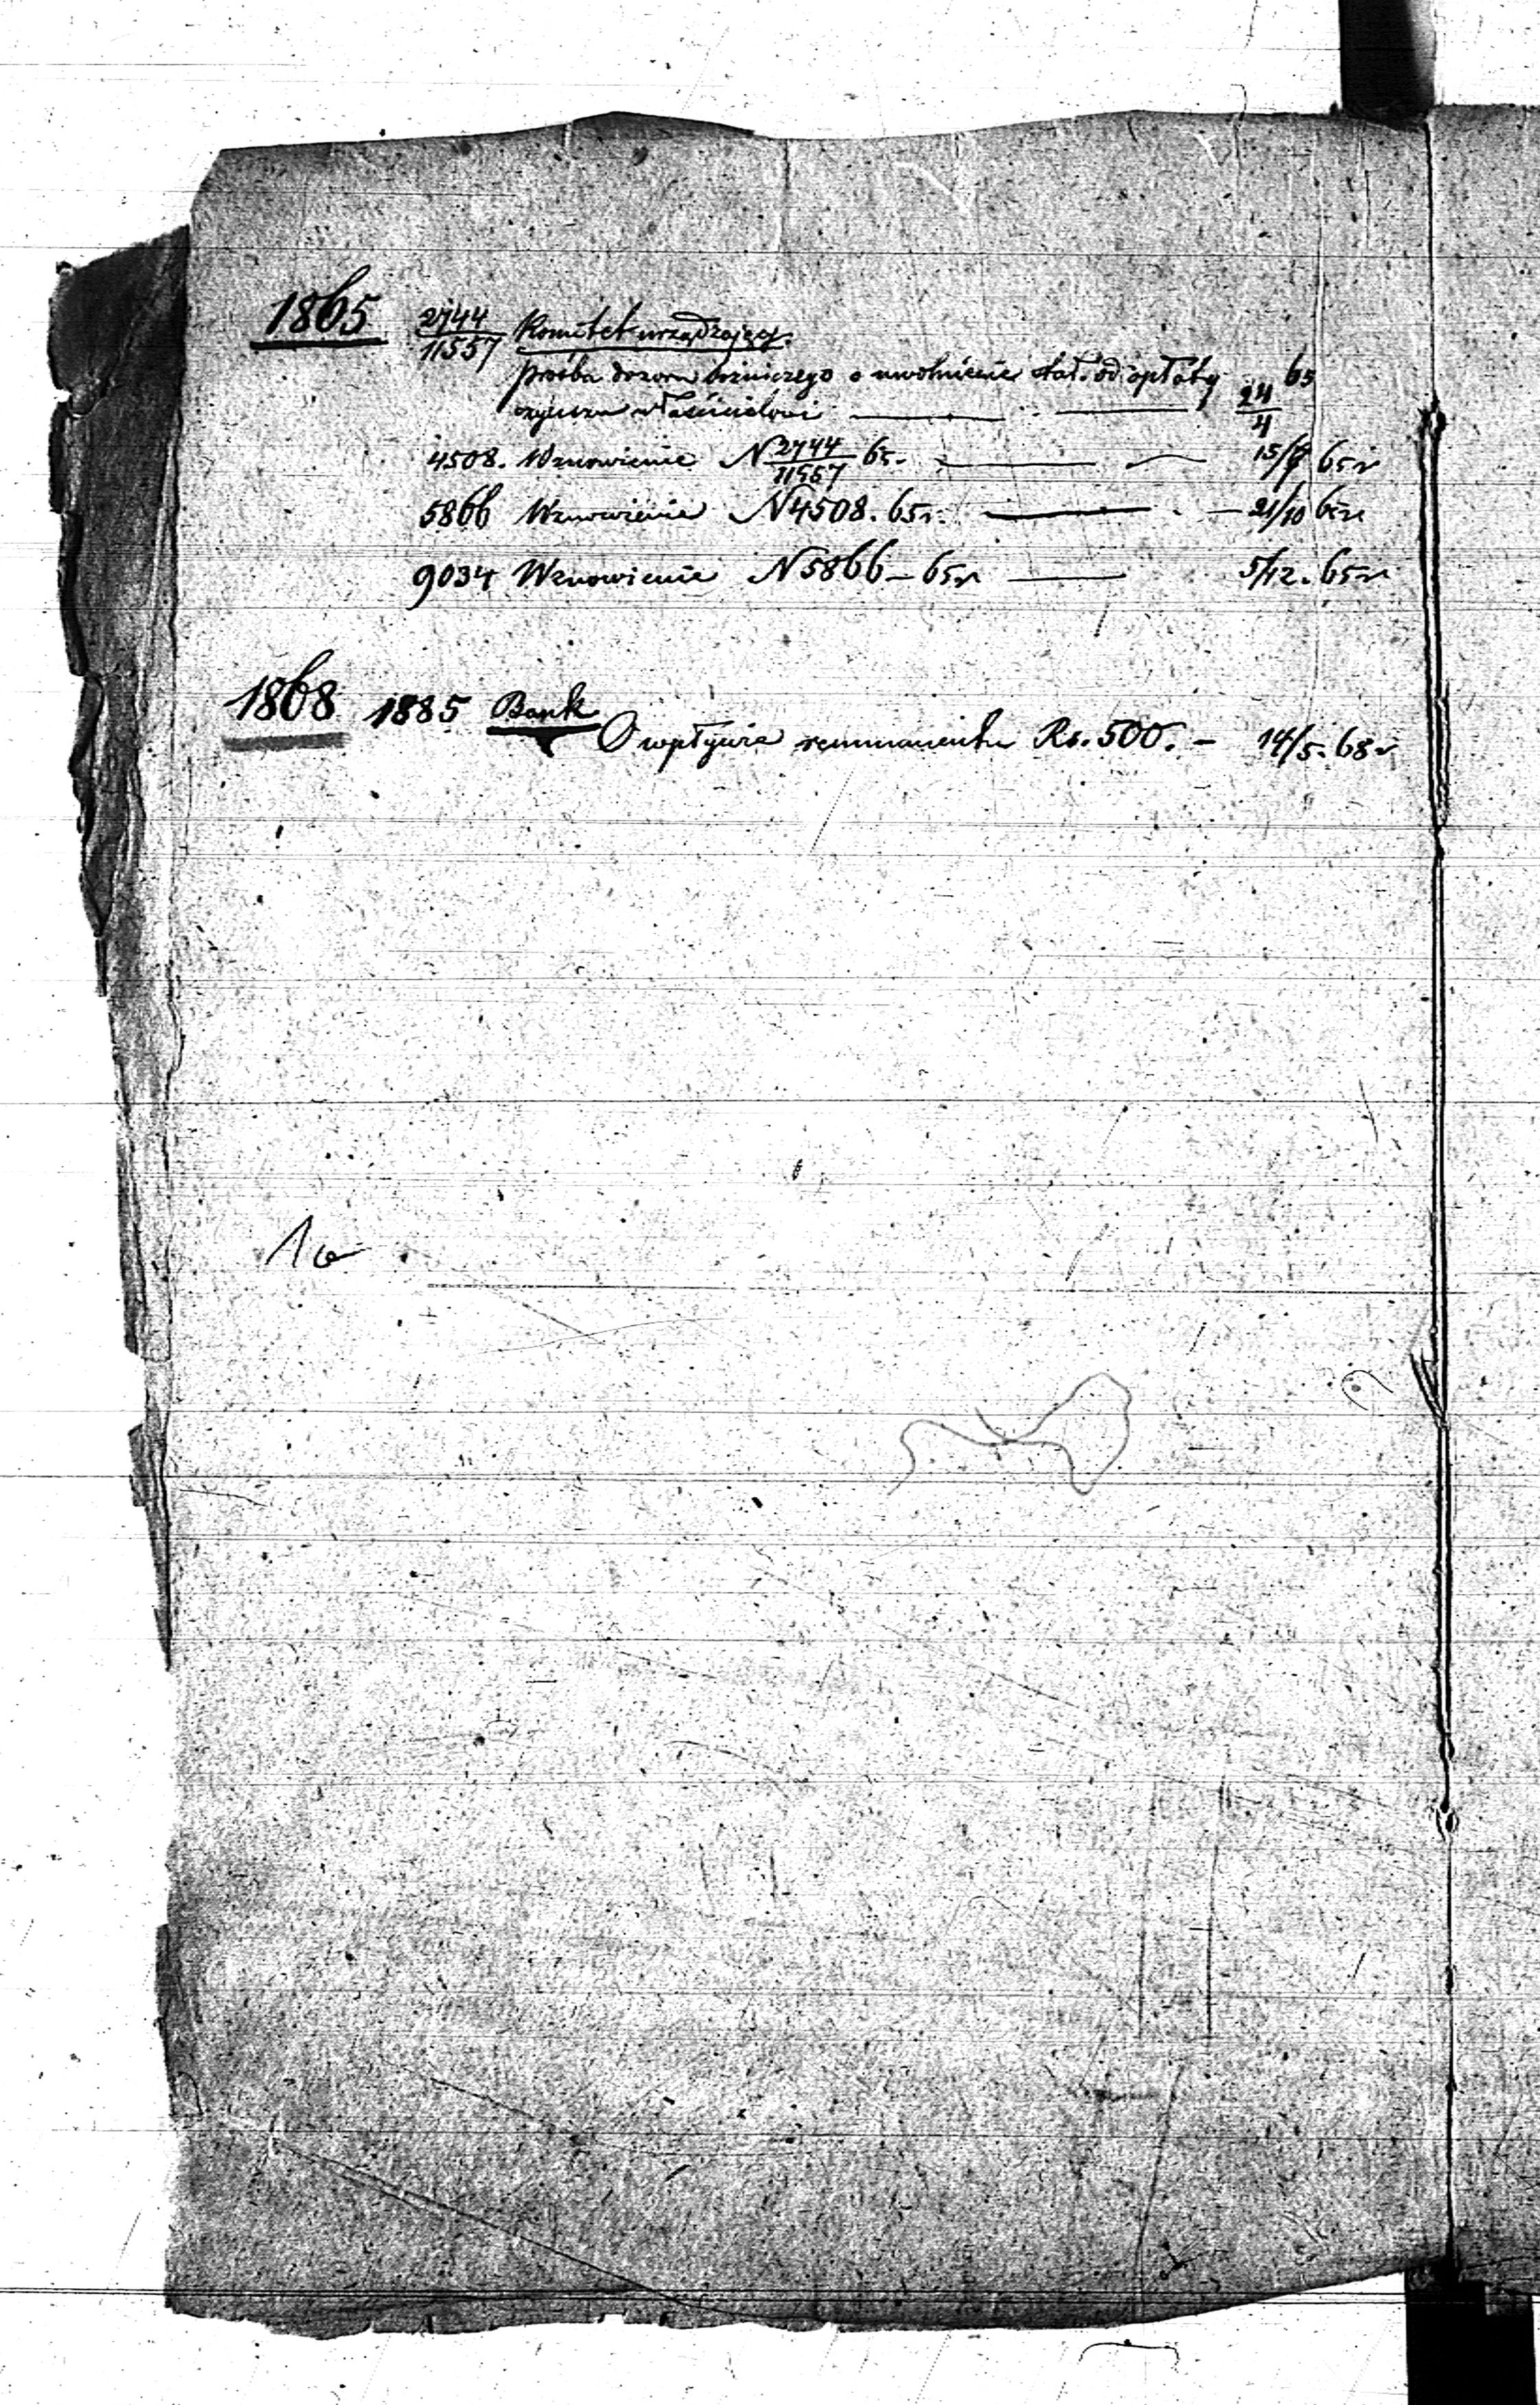 1865 2744/11557 Komitet urządzający.
prośba dozoru bożniczego o uwolnienie od opłaty 24/4 65
czynszu właścicielowi
4508. Wznowienie N 2744/11557 65. 15/7 65 r
5866 Wznowienie N 4508. 65 r. 21/10 65 r
9034 Wznowienie N 5866 - 65 r 5/12. 65 r
1868 1885 Bank
O wpływie remanentu Rs. 500. - 14/5. 68 r